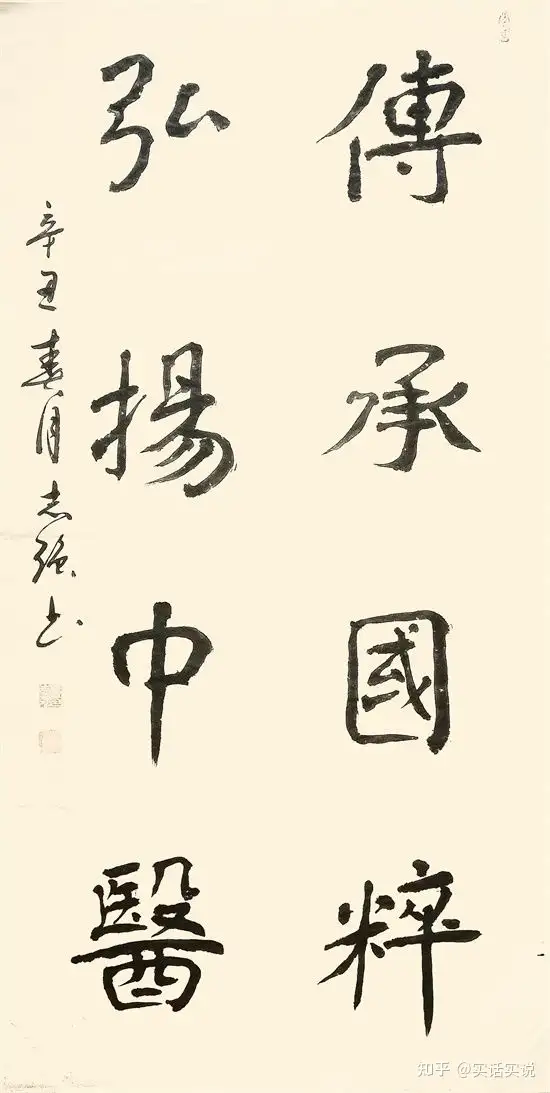 傳承國粹
弘揚中醫
辛丑春月志強书
知乎 @实话实说